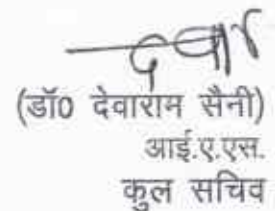 (डॉ0 देवाराम सैनी)
आई.ए.एस.
कुल सचिव